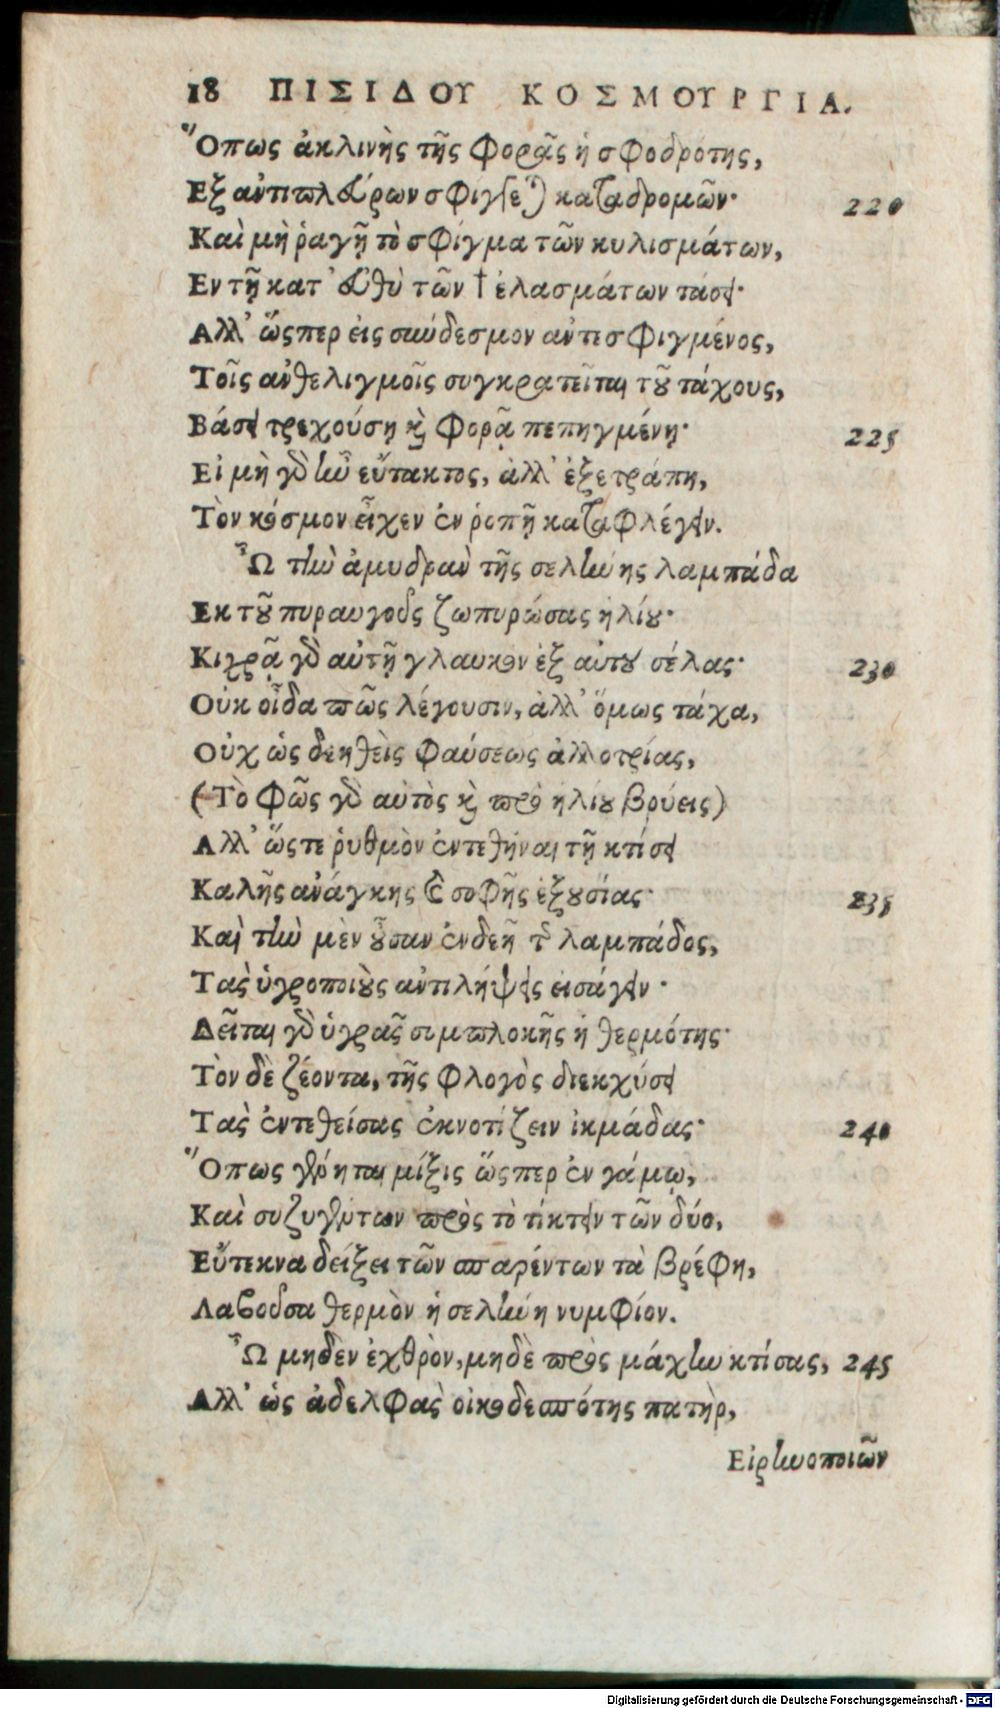 18 ΠΙΣΙΔΟΥ ΚΟΣΜΟΥΡΓΙΑ.
Ὅπως ἀκλινὴς τῆς φορᾶς ἡ σφοδρότης,
Εξ ἀντιπλεύρων σφιγ(ε῀) καταδρομῶν· 220
Καὶ μὴ ῥαγῇ τὸ σφίγμα τῶν κυλισμάτων,
Εν τῇ κατ' εὐθὺ τῶν † ἐλασμάτων τάσει·
Αλλ' ὥςπερ εἰς σύνδεσμον ἀντεσφιγμένος,
Τοῖς ἀνθελιγμοῖς συγκρατεῖται τοῦ τάχους,
Βάσει τρεχούσῃ καὶ φορᾷ πεπηγμένῃ· 225
Εἰ μὴ γὰρ ἦν εὔτακτος, ἀλλ' ἐξετράπη,
Τὸν κόσμον εἶχεν ἐν ῥοπῇ καταφλέγειν.
Ὦ τὴν ἀμυδρὰν τῆς σελήνης λαμπάδα
Εκ τοῦ πυραυγοῦς ζωπυρώσας ἡλίου·
Κιχρᾷ γὰρ αὐτῇ γλαυκὸν ἐξ αὐτοῦ σέλας· 230
Οὐκ οἶδα πῶς λέγουσιν, ἀλλ' ὅμως τάχα,
Οὐχ ὡς δεηθεὶς φαύσεως ἀλλοτρίας,
(Τὸ φῶς γὰρ αὐτὸς καὶ πρὸ ἡλίου βρύεις)
Αλλ' ὥςτε ῥυθμὸν ἐντεθῆναι τῇ κτίσει
Καλῆς ἀνάγκης καὶ σοφῆς ἐξουσίας· 235
Καὶ τὴν μὲν οὖσαν ἐνδεῆ τῆς λαμπάδος,
Τὰς ὑγροποιοὺς ἀντιλήψεις εἰσάγειν·
Δεῖται γὰρ ὑγρᾶς συμπλοκῆς ἡ θερμότης·
Τὸν δὲ ζέοντα, τῆς φλογὸς διεκχύσει
Τὰς ἐντεθείσας ἐκνοτίζειν ἰκμάδας· 240
Ὅπως γένηται μίξις ὥςπερ ἐν γάμῳ,
Καὶ συζυγέντων πρὸς τὸ τίκτειν τῶν δύο,
Εὔτεκνα δείξει τῶν σπαρέντων τὰ βρέφη,
Λαβοῦσα θερμὸν ἡ σελήνη νυμφίον.
Ὦ μηδὲν ἐχθρὸν, μηδὲ πρὸς μάχην κτίσας, 245
Αλλ' ὡς ἀδελφὰς οἰκοδεσπότης πατὴρ,
Εἰρηνοποιῶν
Digitalisierung gefördert durch die Deutsche Forschungsgemeinschaft - DFG